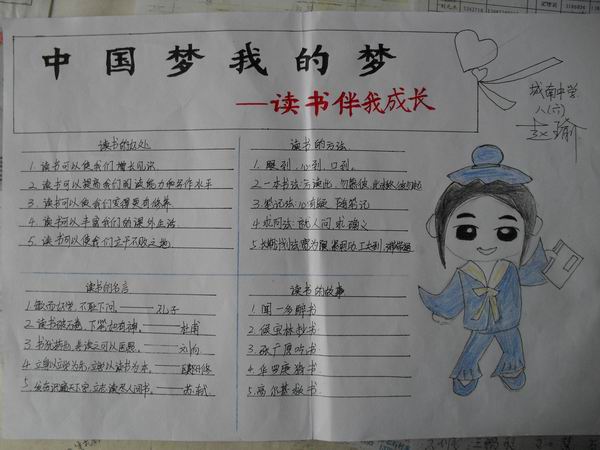 中国梦我的梦
——读书伴我成长
城南中学
八(六)
赵瑜
读书的好处
1. 读书可以使我们增长见识
2. 读书可以提高我们阅读能力和写作水平
3. 读书可以使我们变得更有修养
4. 读书可以丰富我们的课外生活
5. 读书可以使我们立于不败之地
读书的方法
1. 眼到、心到、口到。
2. 一本书法:
3. 笔记法:心有疑 随笔记
4. 求问法 就人问 求确义
5. 宽为限 紧用功 工夫到 滞塞通
读书的名言
1. 敏而好学,不耻下问。——孔子
2. 读书破万卷,下笔如有神。——杜甫
3. 书犹药也,善读之可以医愚。——刘向
4. 立身以立学为先,立学以读书为本。——欧阳修
5. 发奋识遍天下字,立志读尽人间书。——苏轼
读书的故事
1. 闻一多醉书
2. 侯宝林抄书
3. 张广厚吃书
4. 华罗庚猜书
5. 高尔基救书